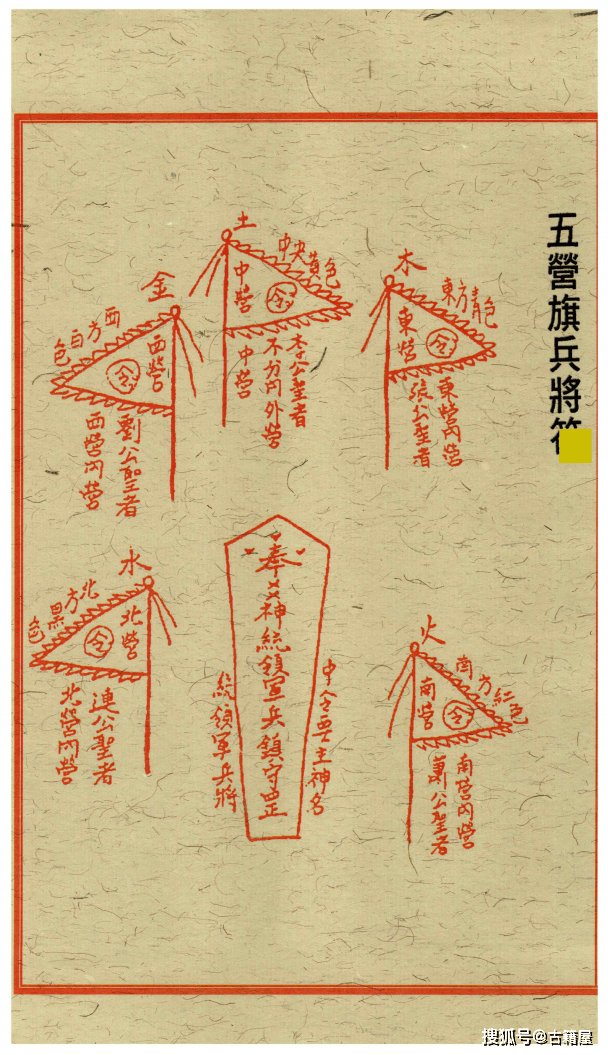 五營旗兵將符
木
東方青色
東營
令
東營內營
張公聖者
土
中央黃色
中營
令
李公聖者
不分內外營
中營
金
西方白色
西營
令
劉公聖者
西營內營
火
南方紅色
南營
令
南營內營
蕭公聖者
中令要主神名
奉
神統領軍兵鎮守罡
統領軍兵將
水
北方黑色
北營
令
連公聖者
北營內營
搜狐号@古籍屋